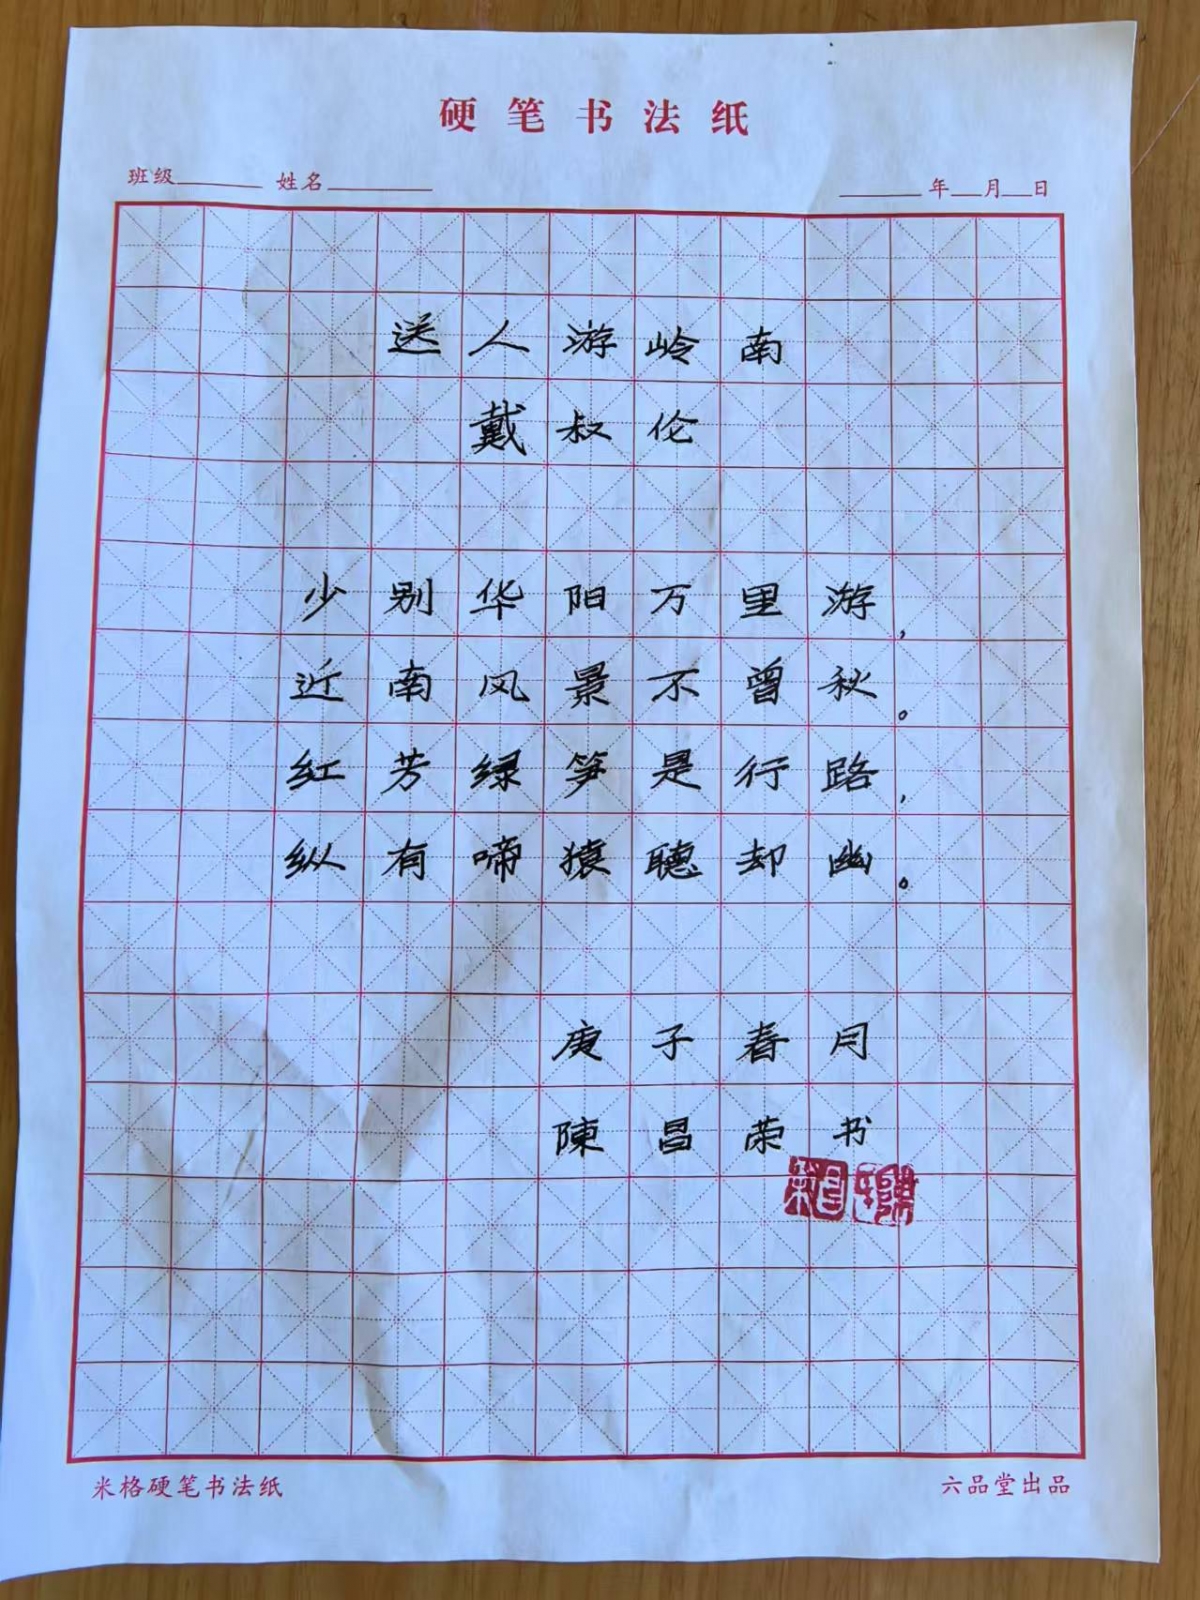 硬笔书法纸
班级 姓名 年 月 日
送人游岭南
戴叔伦
少别华阳万里游，
近南风景不曾秋。
红芳绿笋是行路，
纵有啼猿聴却幽。
庚子春月
陳昌荣书
米格硬笔书法纸 六品堂出品